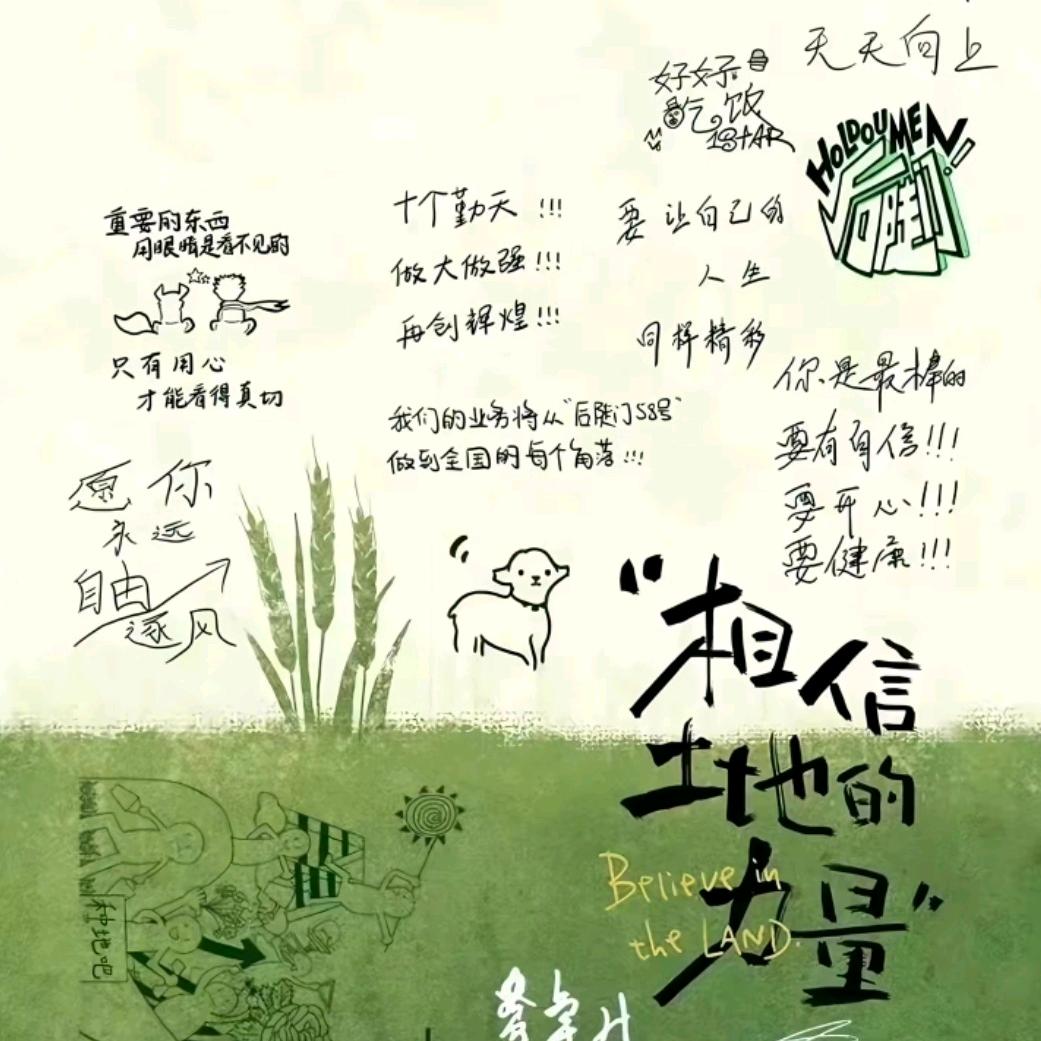 天天向上
好好
吃饭
1STAR
HOLDOUMEN!
后陡门
重要的东西
用眼睛是看不见的
只有用心
才能看得真切
十个勤天!!!
做大做强!!!
再创辉煌!!!
要让自己的
人生
同样精彩
我们的业务将从“后陡门58号”
做到全国的每个角落!!!
你是最棒的
要有自信!!!
要开心!!!
要健康!!!
愿你
永远
自由
逐风
“相信
土地的
力量”
Believe in
the LAND.
种地吧